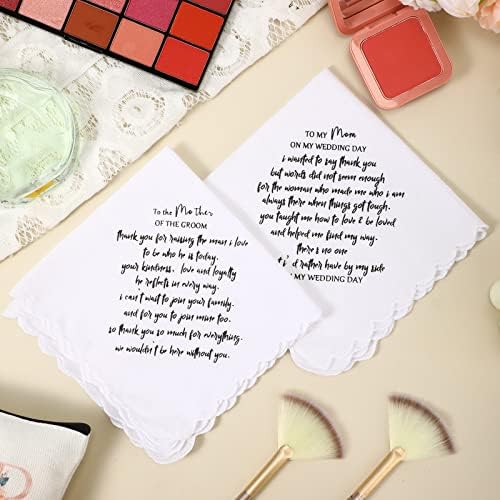 To the Mother
OF THE GROOM
thank you for raising the man i love
to be who he is today.
your kindness, love and loyalty
he reflects in every way.
i can't wait to join your family.
and for you to join mine too.
so thank you so much for everything.
we wouldn't be here without you.
TO MY Mom
ON MY WEDDING DAY
i wanted to say thank you
but words did not seem enough
for the woman who made me who i am
always there when things got tough.
you taught me how to love & be loved
and helped me find my way.
there's no one
i'd rather have by my side
MY WEDDING DAY